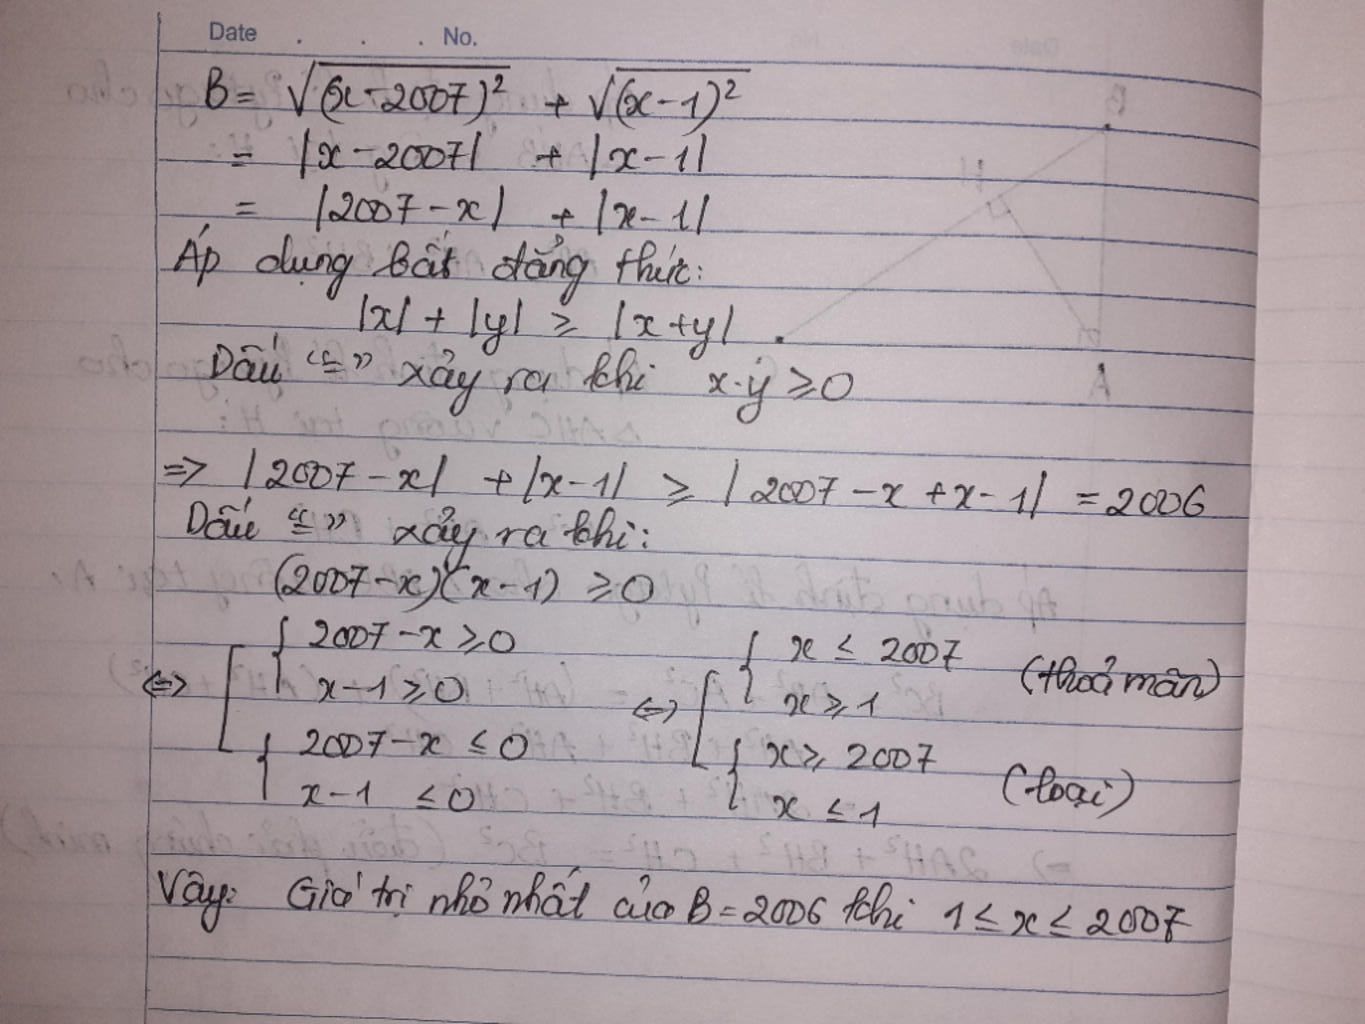 Date . . . No.
B = √(x-2007)² + √(x-1)²
= |x-2007| + |x-1|
= |2007-x| + |x-1|
Áp dụng bất đẳng thức:
|x| + |y| ≥ |x+y|.
Dấu "=" xảy ra khi x.y ≥ 0
=> |2007-x| + |x-1| ≥ |2007-x+x-1| = 2006
Dấu "=" xảy ra khi:
(2007-x)(x-1) ≥ 0
<=> [ { 2007-x ≥ 0 <=> [ { x ≤ 2007 (thoả mãn)
x-1 ≥ 0 x ≥ 1
{ 2007-x ≤ 0 { x ≥ 2007 (loại)
x-1 ≤ 0 x ≤ 1
Vậy: Giá trị nhỏ nhất của B = 2006 khi 1 ≤ x ≤ 2007